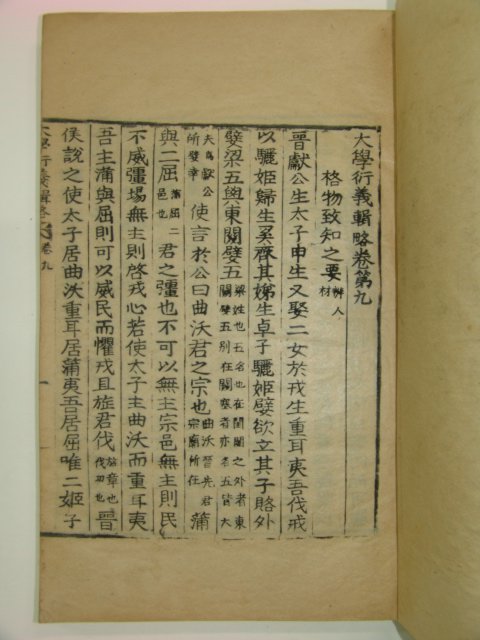 大學衍義輯略卷第九
格物致知之要 辨人材
晉獻公生太子申生又娶二女於戎生重耳夷吾伐戎
以驪姬歸生奚齊其娣生卓子驪姬嬖欲立其子賂外
嬖梁五與東關嬖五 梁姓也五名也在閨闥之外者東關嬖五別在關塞者亦名五皆大
夫爲獻公所嬖幸 使言於公曰曲沃君之宗也 曲沃晉先君宗廟所在 蒲
與二屈 蒲屈二邑也 君之彊也不可以無主宗邑無主則民
不威彊埸無主則啓戎心若使太子主曲沃而重耳夷
吾主蒲與屈則可以威民而懼戎且旌君伐 旌章也伐功也 晉
侯說之使太子居曲沃重耳居蒲夷吾居屈唯二姬子
大學衍義輯略 卷九 一